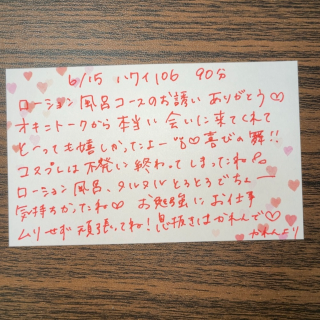 6/15 ハワイ106 90分
ローション風呂コースのお誘い ありがとう♡
オキニトークから本当に会いに来てくれて
とーっても嬉しかったよー 喜びの舞!!
コスプレは不発に終わってしまったね
ローション風呂、ヌルヌルとろとろでちょー
気持ちかったね♡ お勉強にお仕事
ムリせず頑張ってね!息抜きはかれんで♡
かれんより